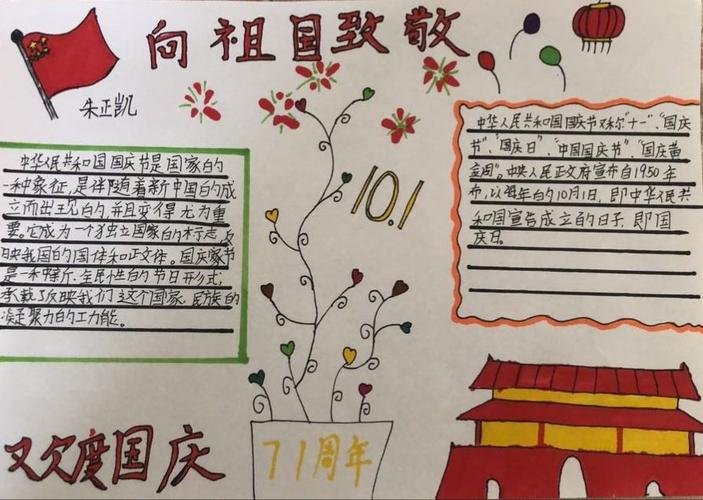 向祖国致敬
朱正凯
中华人民共和国国庆节是国家的
一种象征,是伴随着新中国的成
立而出现的,并且变得尤为重
要。它成为一个独立国家的标志,反
映我国的国体和正文体。国庆家节
是一种新、全民性的节日形式,
承载了反映我们这个国家、民族的
凝聚力的工力能。
10.1
中华人民共和国国庆节又称"十一"、"国庆
节"、"国庆日"、"中国国庆节"、"国庆黄
金周"。中央人民正文府宣布自1950年
布,以每年的10月1日,即中华人民共
和国宣告成立的日子,即国
庆日。
71周年
欢度国庆